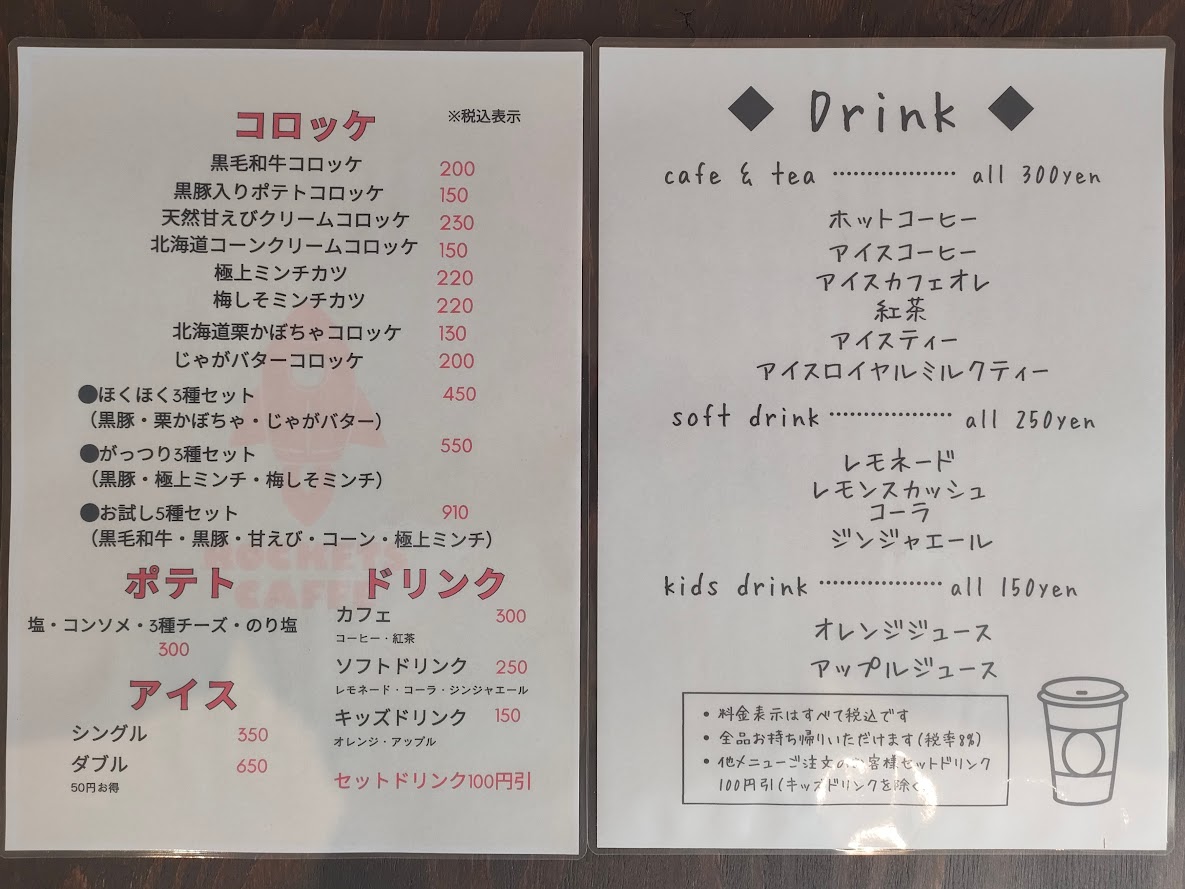 コロッケ ※税込表示
黒毛和牛コロッケ 200
黒豚入りポテトコロッケ 150
天然甘えびクリームコロッケ 230
北海道コーンクリームコロッケ 150
極上ミンチカツ 220
梅しそミンチカツ 220
北海道栗かぼちゃコロッケ 130
じゃがバターコロッケ 200
●ほくほく3種セット 450
(黒豚・栗かぼちゃ・じゃがバター)
●がっつり3種セット 550
(黒豚・極上ミンチ・梅しそミンチ)
●お試し5種セット 910
(黒毛和牛・黒豚・甘えび・コーン・極上ミンチ)
ROCKETS
CAFE
ポテト
塩・コンソメ・3種チーズ・のり塩
300
アイス
シングル 350
ダブル 650
50円お得
ドリンク
カフェ 300
コーヒー・紅茶
ソフトドリンク 250
レモネード・コーラ・ジンジャエール
キッズドリンク 150
オレンジ・アップル
セットドリンク100円引
◆ Drink ◆
cafe & tea ・・・・・・・・・・・・・・・・・・ all 300yen
ホットコーヒー
アイスコーヒー
アイスカフェオレ
紅茶
アイスティー
アイスロイヤルミルクティー
soft drink ・・・・・・・・・・・・・・・・・・ all 250yen
レモネード
レモンスカッシュ
コーラ
ジンジャエール
kids drink ・・・・・・・・・・・・・・・・・・ all 150yen
オレンジジュース
アップルジュース
• 料金表示はすべて税込です
• 全品お持ち帰りいただけます(税率8%)
• 他メニューご注文のお客様セットドリンク
100円引(キッズドリンクを除く